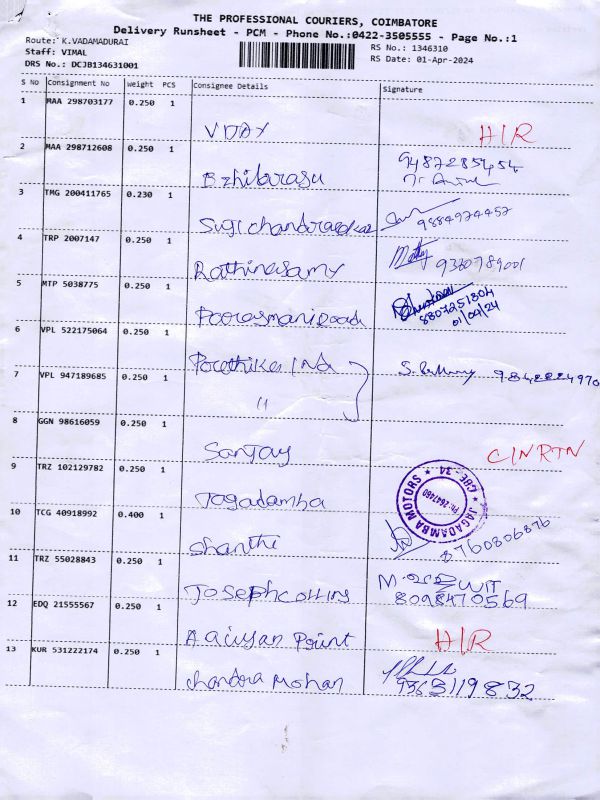 THE PROFESSIONAL COURIERS, COIMBATORE
Delivery Runsheet - PCM - Phone No.:0422-3505555 - Page No.:1
Route: K.VADAMADURAI
RS No.: 1346310
Staff: VIMAL
RS Date: 01-Apr-2024
DRS No.: DCJB134631001
S No Consignment No Weight PCS Consignee Details Signature
1 MAA 298703177 0.250 1
VIJAY H/R
2 MAA 298712608 0.250 1
9487285454
Ezhilarasu
3 TMG 200411765 0.230 1
Sugi chandrasekar 9884924457
4 TRP 2007147 0.250 1
Rathinasamy 9380789001
5 MTP 5038775 0.250 1
8807251804
01/04/24
6 VPL 522175064 0.250 1
7 VPL 947189685 0.250 1
9842224970
"
8 GGN 98616059 0.250 1
Sanjay C/N RTN
9 TRZ 102129782 0.250 1
Jagadamba
JAGADAMBA MOTORS ★ CBE - 34 ★
Ph: 2647460
10 TCG 40918992 0.400 1
Shanthi 8760806876
11 TRZ 55028843 0.250 1
Joseph collins
8098470569
12 EDQ 21555567 0.250 1
Point H/R
13 KUR 531222174 0.250 1
chandra Mohan 9363119832